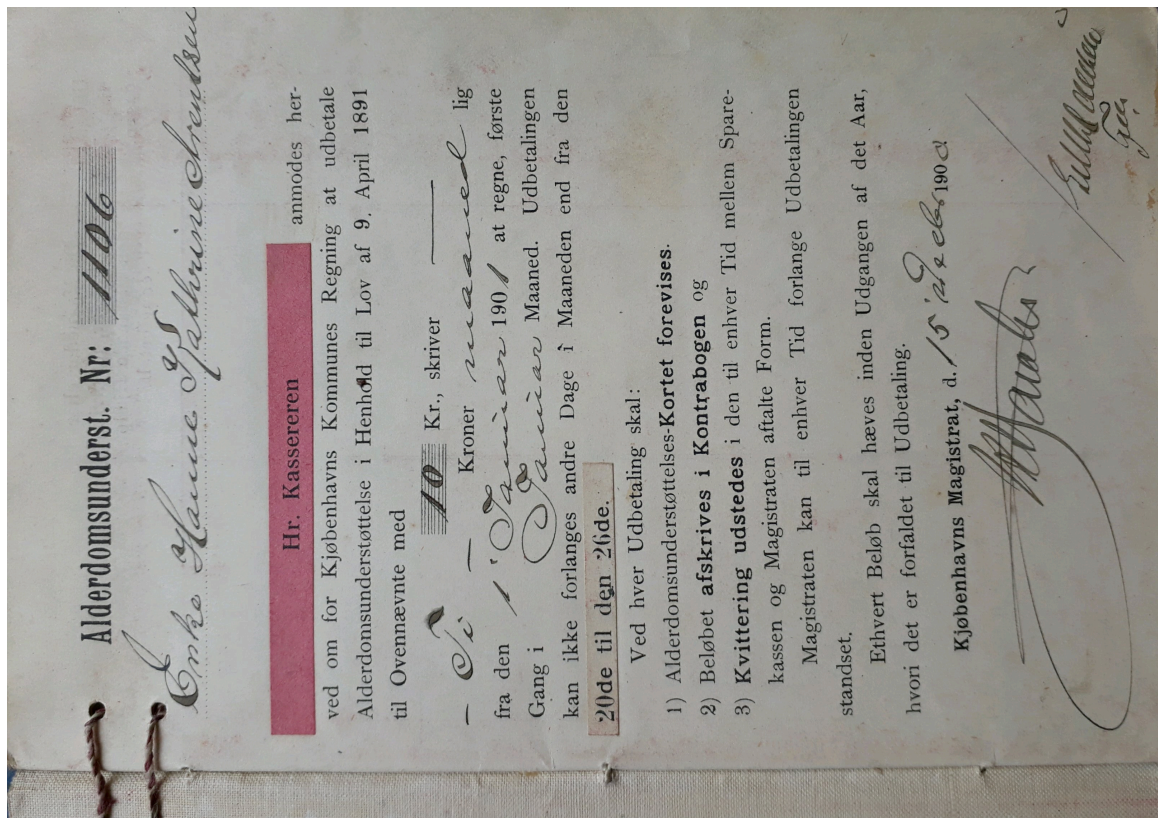 Alderdomsunderst. Nr: 1106
Enke Hanne Kathrine Arentsen
Hr. Kassereren anmodes her-
ved om for Kjøbenhavns Kommunes Regning at udbetale
Alderdomsunderstøttelse i Henhold til Lov af 9. April 1891
til Ovennævnte med
10 Kr., skriver
— Ti — Kroner maaned lig
fra den 1' Januar 1901 at regne, første
Gang i Januar Maaned. Udbetalingen
kan ikke forlanges andre Dage i Maaneden end fra den
20de til den 26de.
Ved hver Udbetaling skal:
1) Alderdomsunderstøttelses-Kortet forevises.
2) Beløbet afskrives i Kontrabogen og
3) Kvittering udstedes i den til enhver Tid mellem Spare-
kassen og Magistraten aftalte Form.
Magistraten kan til enhver Tid forlange Udbetalingen
standset.
Ethvert Beløb skal hæves inden Udgangen af det Aar,
hvori det er forfaldet til Udbetaling.
Kjøbenhavns Magistrat, d. 15' Decbr 1900